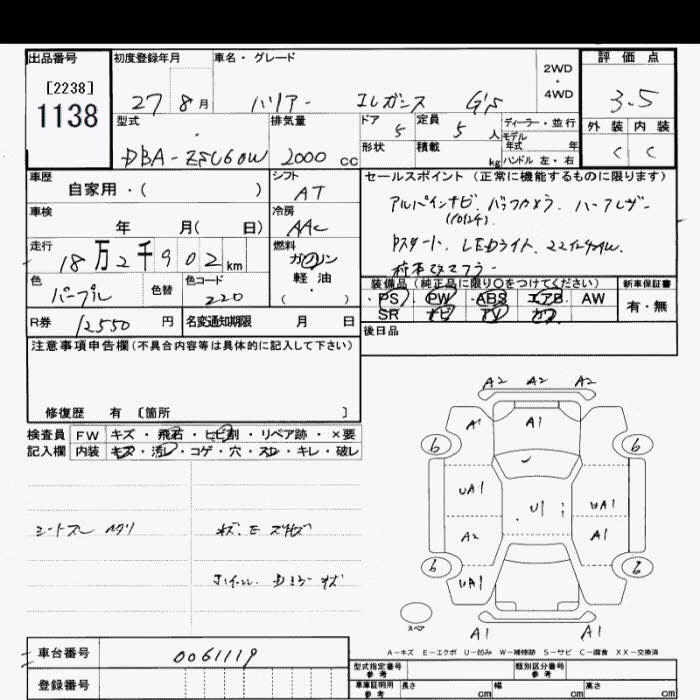 出品番号 初度登録年月 車名・グレード 2WD・4WD 評価点
[2238]
1138
27 8月 ハリアー エレガンス G's 3.5
型式 排気量 ドア 定員 ディーラー・並行 外装 内装
DBA-ZSU60W 2000 cc 5 5人 モデル年式 年 C C
形状 積載 kg ハンドル 左・右
車歴 シフト セールスポイント(正常に機能するものに限ります)
自家用・( ) AT
アルパインナビ.バックカメラ.ハーフレザー
車検 冷房
年 月( 日) AAC
Pスタート.LEDライト.22インチAW.
走行 燃料
18万2千902km ガソリン
軽油
( )
色 色替 色コード
パープル 220
装備品(純正品に限り○をつけてください) 新車保証書
PS PW ABS エアB AW 有・無
SR ナビ TV カワ
R券 12550円 名変通知期限 月 日
後日品
注意事項申告欄(不具合内容等は具体的に記入して下さい)
修復歴 有 〔箇所 〕
検査員 FW キズ・飛石・ヒビ割・リペア跡・×要
記入欄 内装 キズ・汚レ・コゲ・穴・スレ・キレ・破レ
A2 A2 A2
A1 A1
6 6
UA1 U1 UA1
A2 A1
6 6
UA1
スペア
A1 A1
A-キズ E-エクボ U-凹み W-補修跡 S-サビ C-腐食 XX-交換済
車台番号 0061119
登録番号
型式指定番号 参考 類別区分番号 参考
車庫証明用 参考 長さ cm 幅 cm 高さ cm